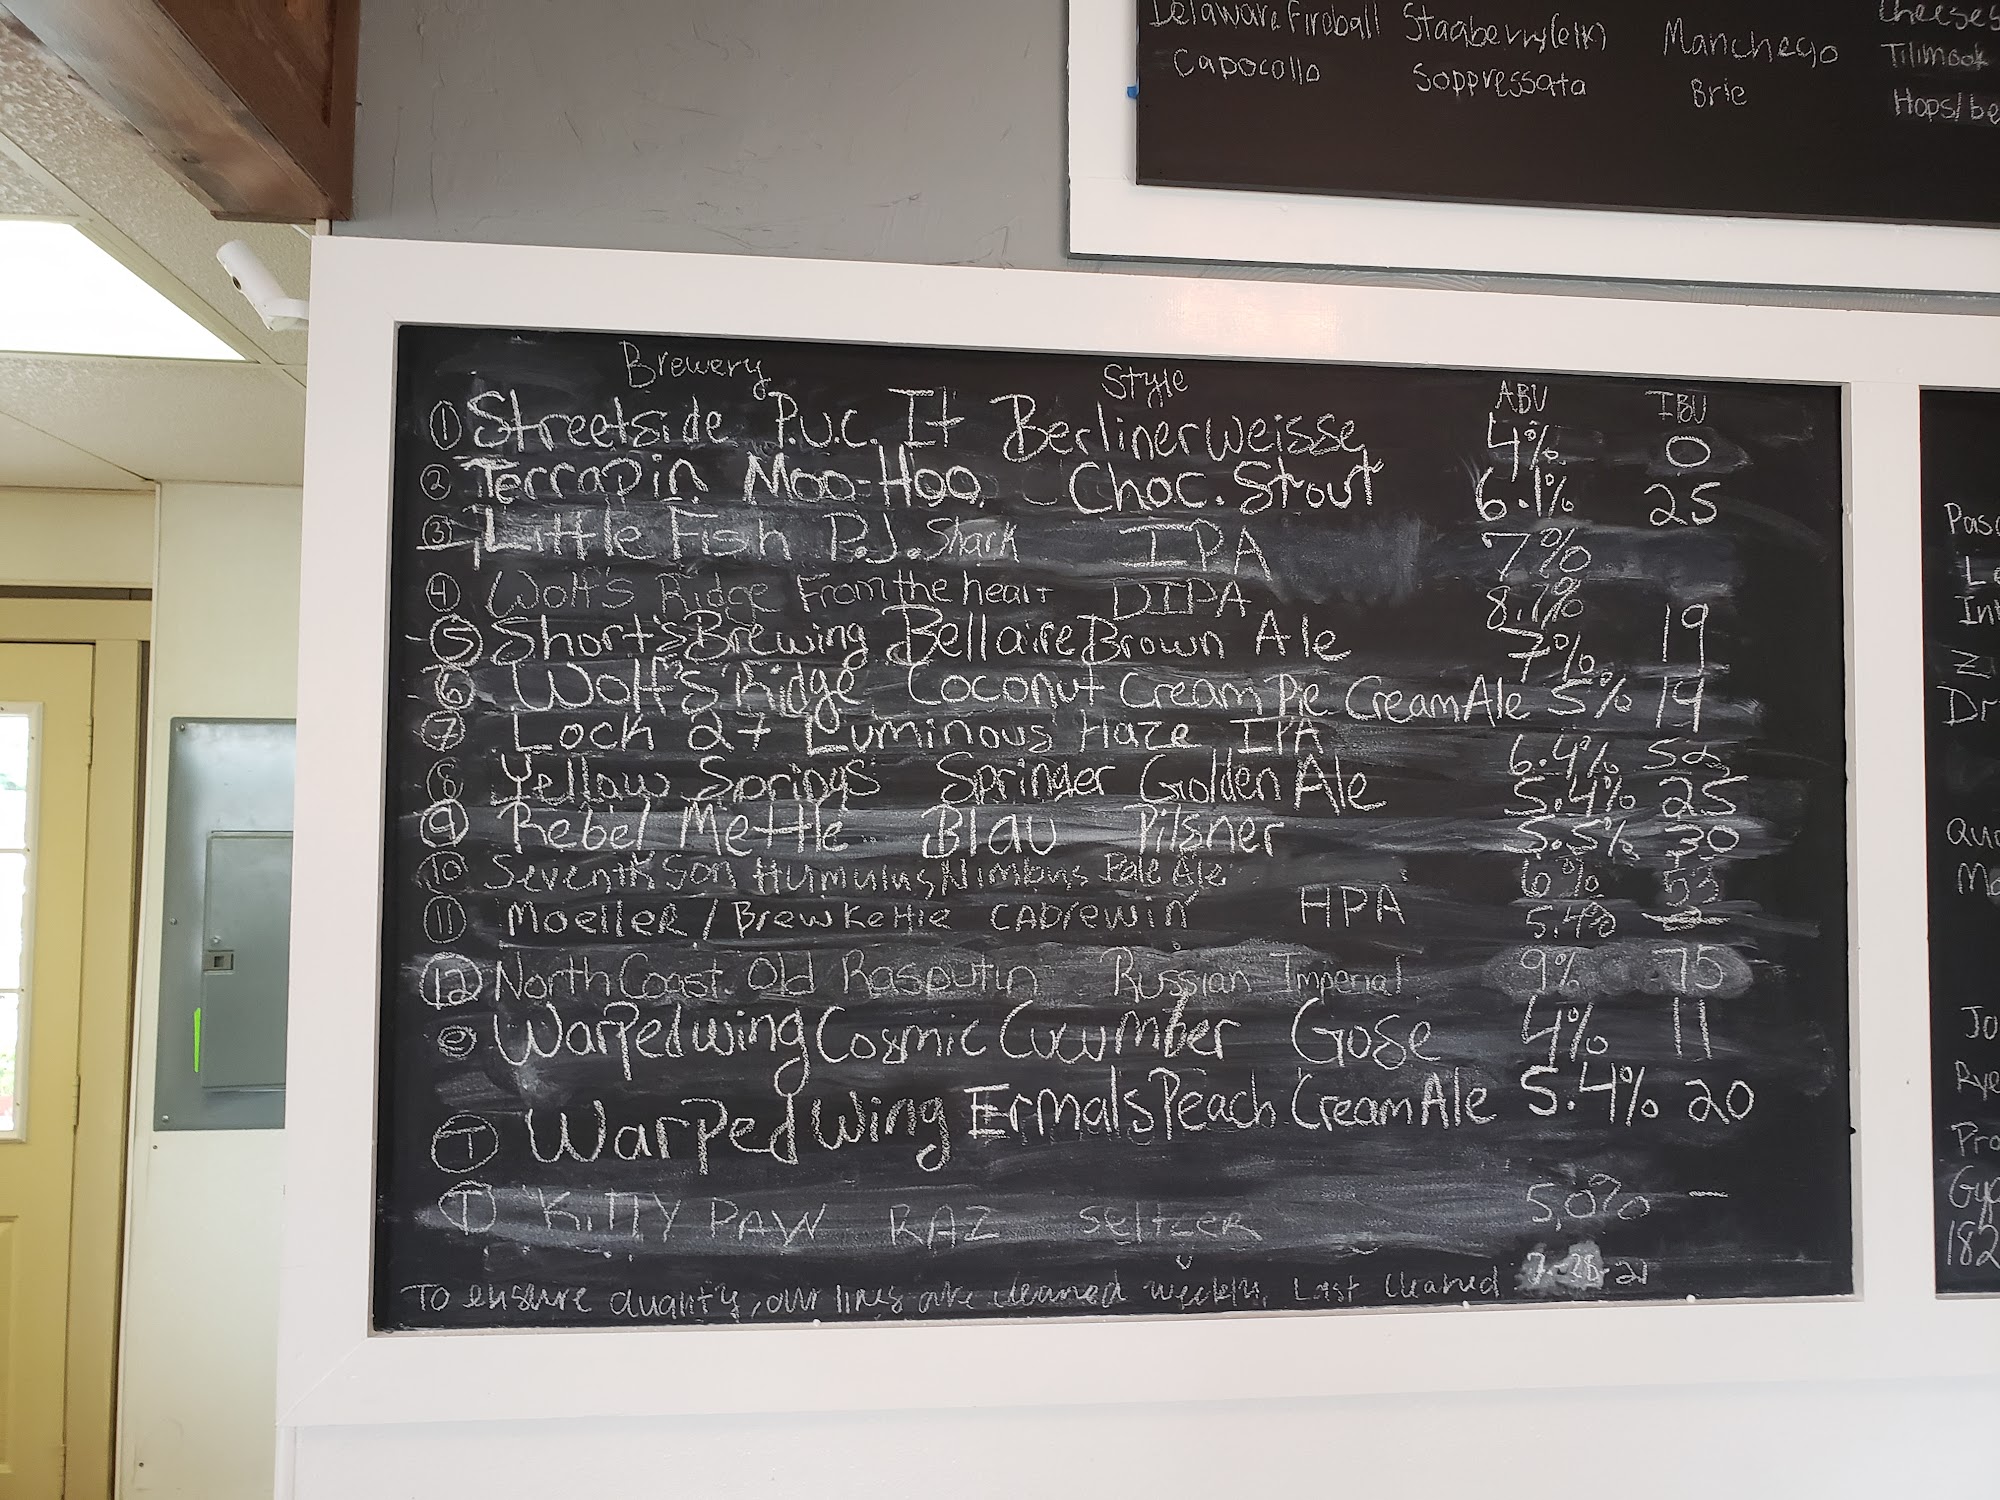 Delaware Fireball Stagberry(elk) Manchego Cheeses
Capocollo Soppressata Brie Tillmook
Hops/be
Brewery Style ABV IBU
① Streetside P.U.C. It Berlinerweisse 4% 0
② Terrapin Moo-Hoo - Choc. Stout 6.1% 25
③ Little Fish P.J. Shark IPA 7%
④ Wolf's Ridge From the heart DIPA 8.1%
⑤ Short's Brewing Bellaire Brown Ale 7% 19
⑥ Wolf's Ridge Coconut Cream Pie Cream Ale 5% 19
⑦ Lock 27 Luminous Haze IPA 6.4% 52
⑧ Yellow Springs Springer Golden Ale 5.4% 25
⑨ Rebel Mettle Blau Pilsner 5.5% 30
⑩ Seventh Son Humulus Nimbus Pale Ale 6% 53
⑪ Moeller / Brew Kettle CABrewin' HPA 5.4%
⑫ North Coast Old Rasputin Russian Imperial 9% 75
Warpedwing Cosmic Cucumber Gose 4% 11
Ⓣ Warped Wing Ermals Peach Cream Ale 5.4% 20
Ⓣ KITTY PAW RAZ SELTZER 5.0% -
To ensure quality, our lines are cleaned weekly. Last cleaned 7-28-21
Pasc
Le
Int
Zi
Dr
Qua
Mo
Jo
Rye
Pro
Gyp
182